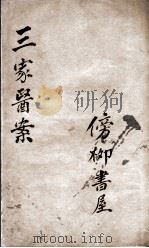 三家醫案
傍柳書屋
mtoou.info